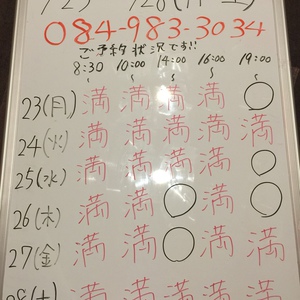 084-983-3034
ご予約状況です!!
8:30 10:00 14:00 16:00 19:00
~ ~ ~ ~ ~
23(月) 満 満 満 満 ○
24(火) 満 満 満 満 満
25(水) 満 満 満 満 ○
26(木) 満 満 ○ 満 ○
27(金) 満 満 ○ 満 満
28(土) 満 満 満 満 満